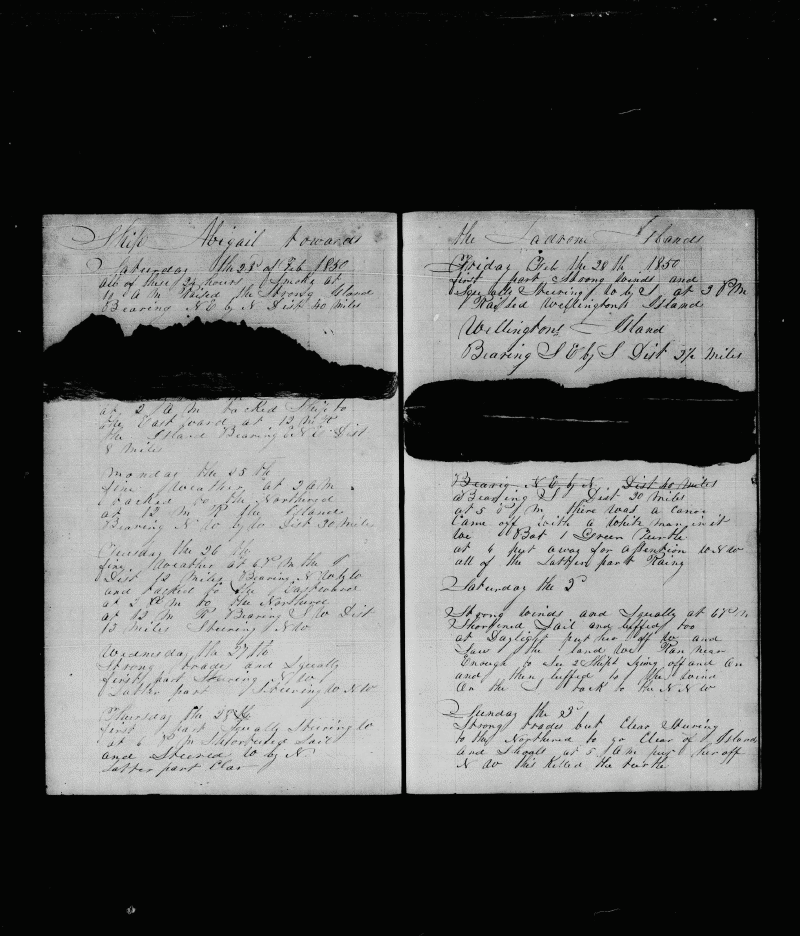 Ship Abigail towards
Saturday the 23d of Feb 1850
all of these 24 hours Smoke at
10 A M Raised the Strong Island
Bearing N E by N Dist 40 miles
at 2 A M tacked Ship to
the Eastward at 12 M
the Island Bearing N E Dist
8 miles
Monday the 25 th
fine Weather at 2 A M
tacked to the Northerd
at 12 M the Island
Bearing N W by W Dist 30 miles
Tuesday the 26 th
fine Weather at 6 P M the
Dist 12 miles Bearing N W by W
and tacked to the Eastward
at 2 A M to the Northerd
at 12 M Bearing S W Dist
15 miles Steering N W
Wednesday th 27 th
Strong trades and Squally
first part Steering N W
Latter part Steering W N W
Thursday the 28 th
first part Squally Steering W
at 6 P m Shortened Sail
and Steered W by N
Latter part Clar
the Ladrone Islands
Friday Feb the 28 th 1850
first part Strong winds and
Squally Steering W by S at 3 P M
Raised Wellingtons Islands
Wellingtons Island
Bearing S E by S Dist 27 miles
Bearig N E by N Dist 40 miles
Bearing S Dist 20 miles
at 5 P m there was a Canoe
Came off with a White man in it
We Bot 1 Green Turtle
at 6 put away for W N W
all of the Latter part Rainy
Saturday the 2
Strong winds and Squally at 6 P M
Shortened Sail and luffed too
at Daylight put her off W and
Saw the land We Ran near
Enough to See 2 Ships lying off and On
and then luffed to the wind
On the S tack to the N N W
Sunday the 3
Strong trades but Clear Steering
to the Northerd to go Clear of Island
and Shoals at 5 A M put her off
N W this Killed the turtle